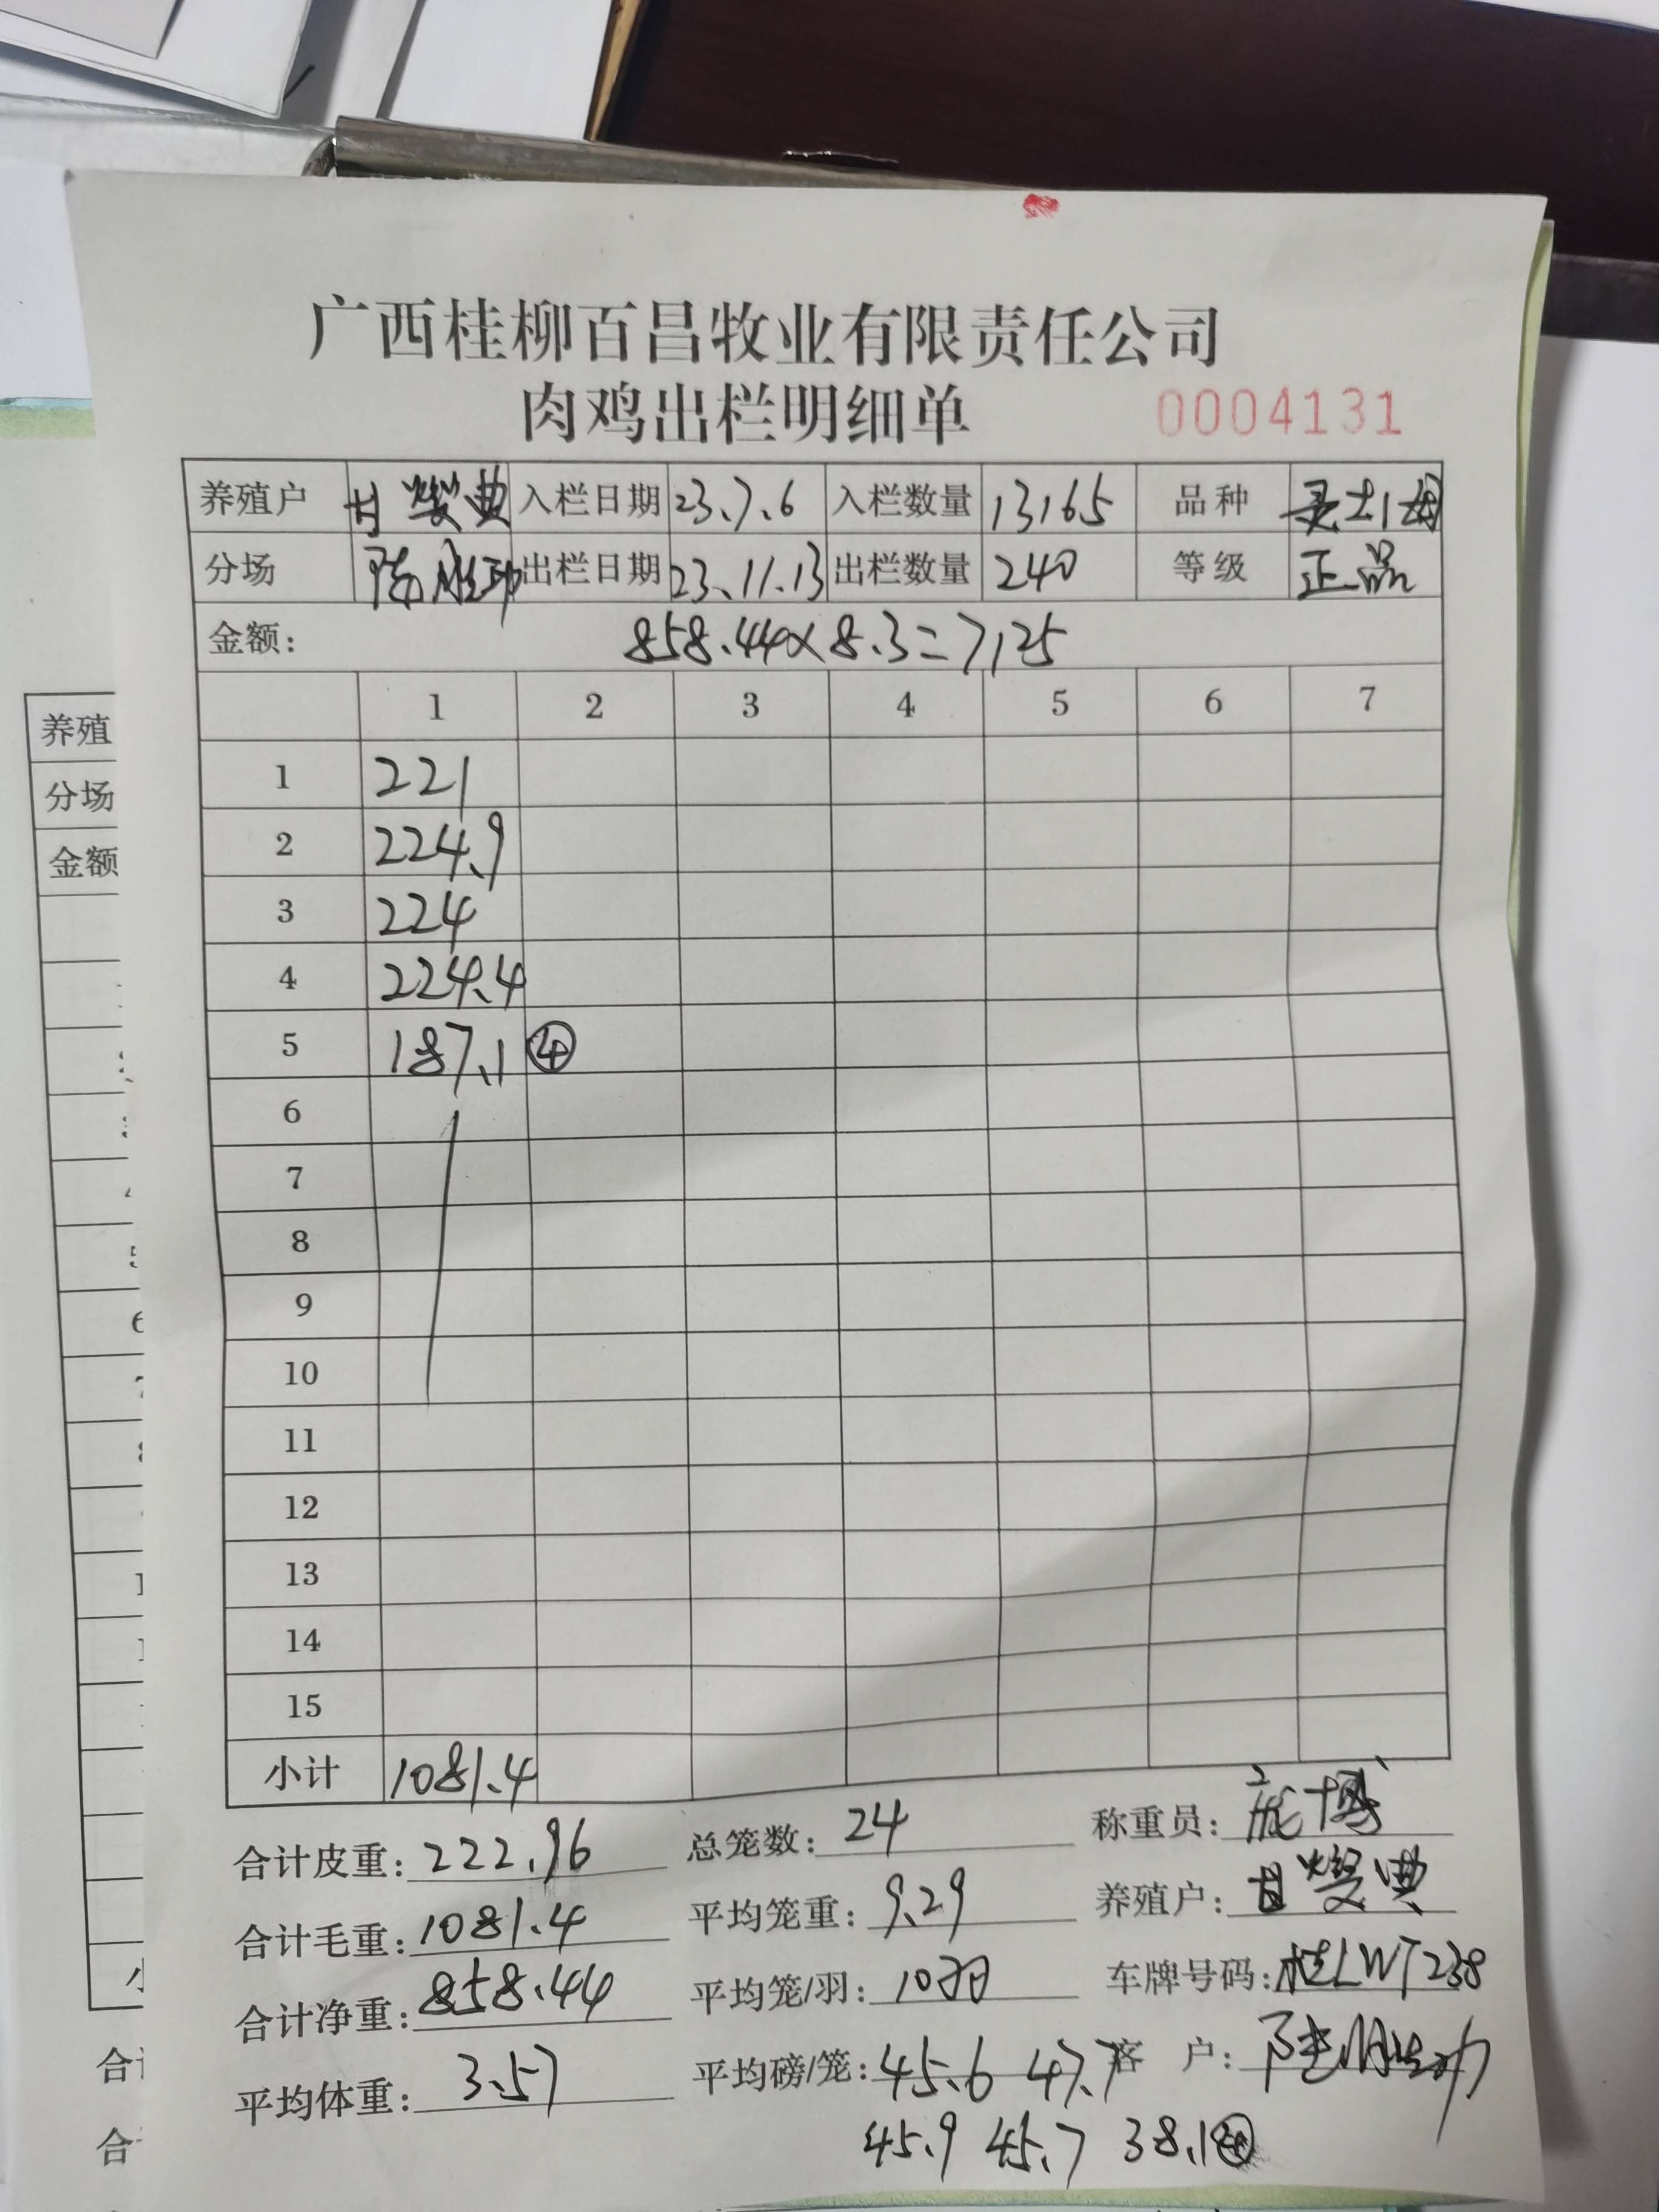 广西桂柳百昌牧业有限责任公司
肉鸡出栏明细单 0004131
养殖户 甘燦典 入栏日期 23.7.6 入栏数量 13165 品种
分场 出栏日期 23.11.13 出栏数量 240 等级 正品
金额: 858.44×8.3=7125
1 2 3 4 5 6 7
1 221
2 224.9
3 224
4 224.4
5 187.1 ④
6
7
8
9
10
11
12
13
14
15
小计 1081.4
合计皮重: 222.96 总笼数: 24 称重员: 庞博
合计毛重: 1081.4 平均笼重: 9.29 养殖户: 甘燦典
合计净重: 858.44 平均笼/羽: 10羽 车牌号码: 桂LWT238
平均体重: 3.57 平均磅/笼: 45.6 47.7 客户:
45.9 45.7 38.1④
养殖
分场
金额